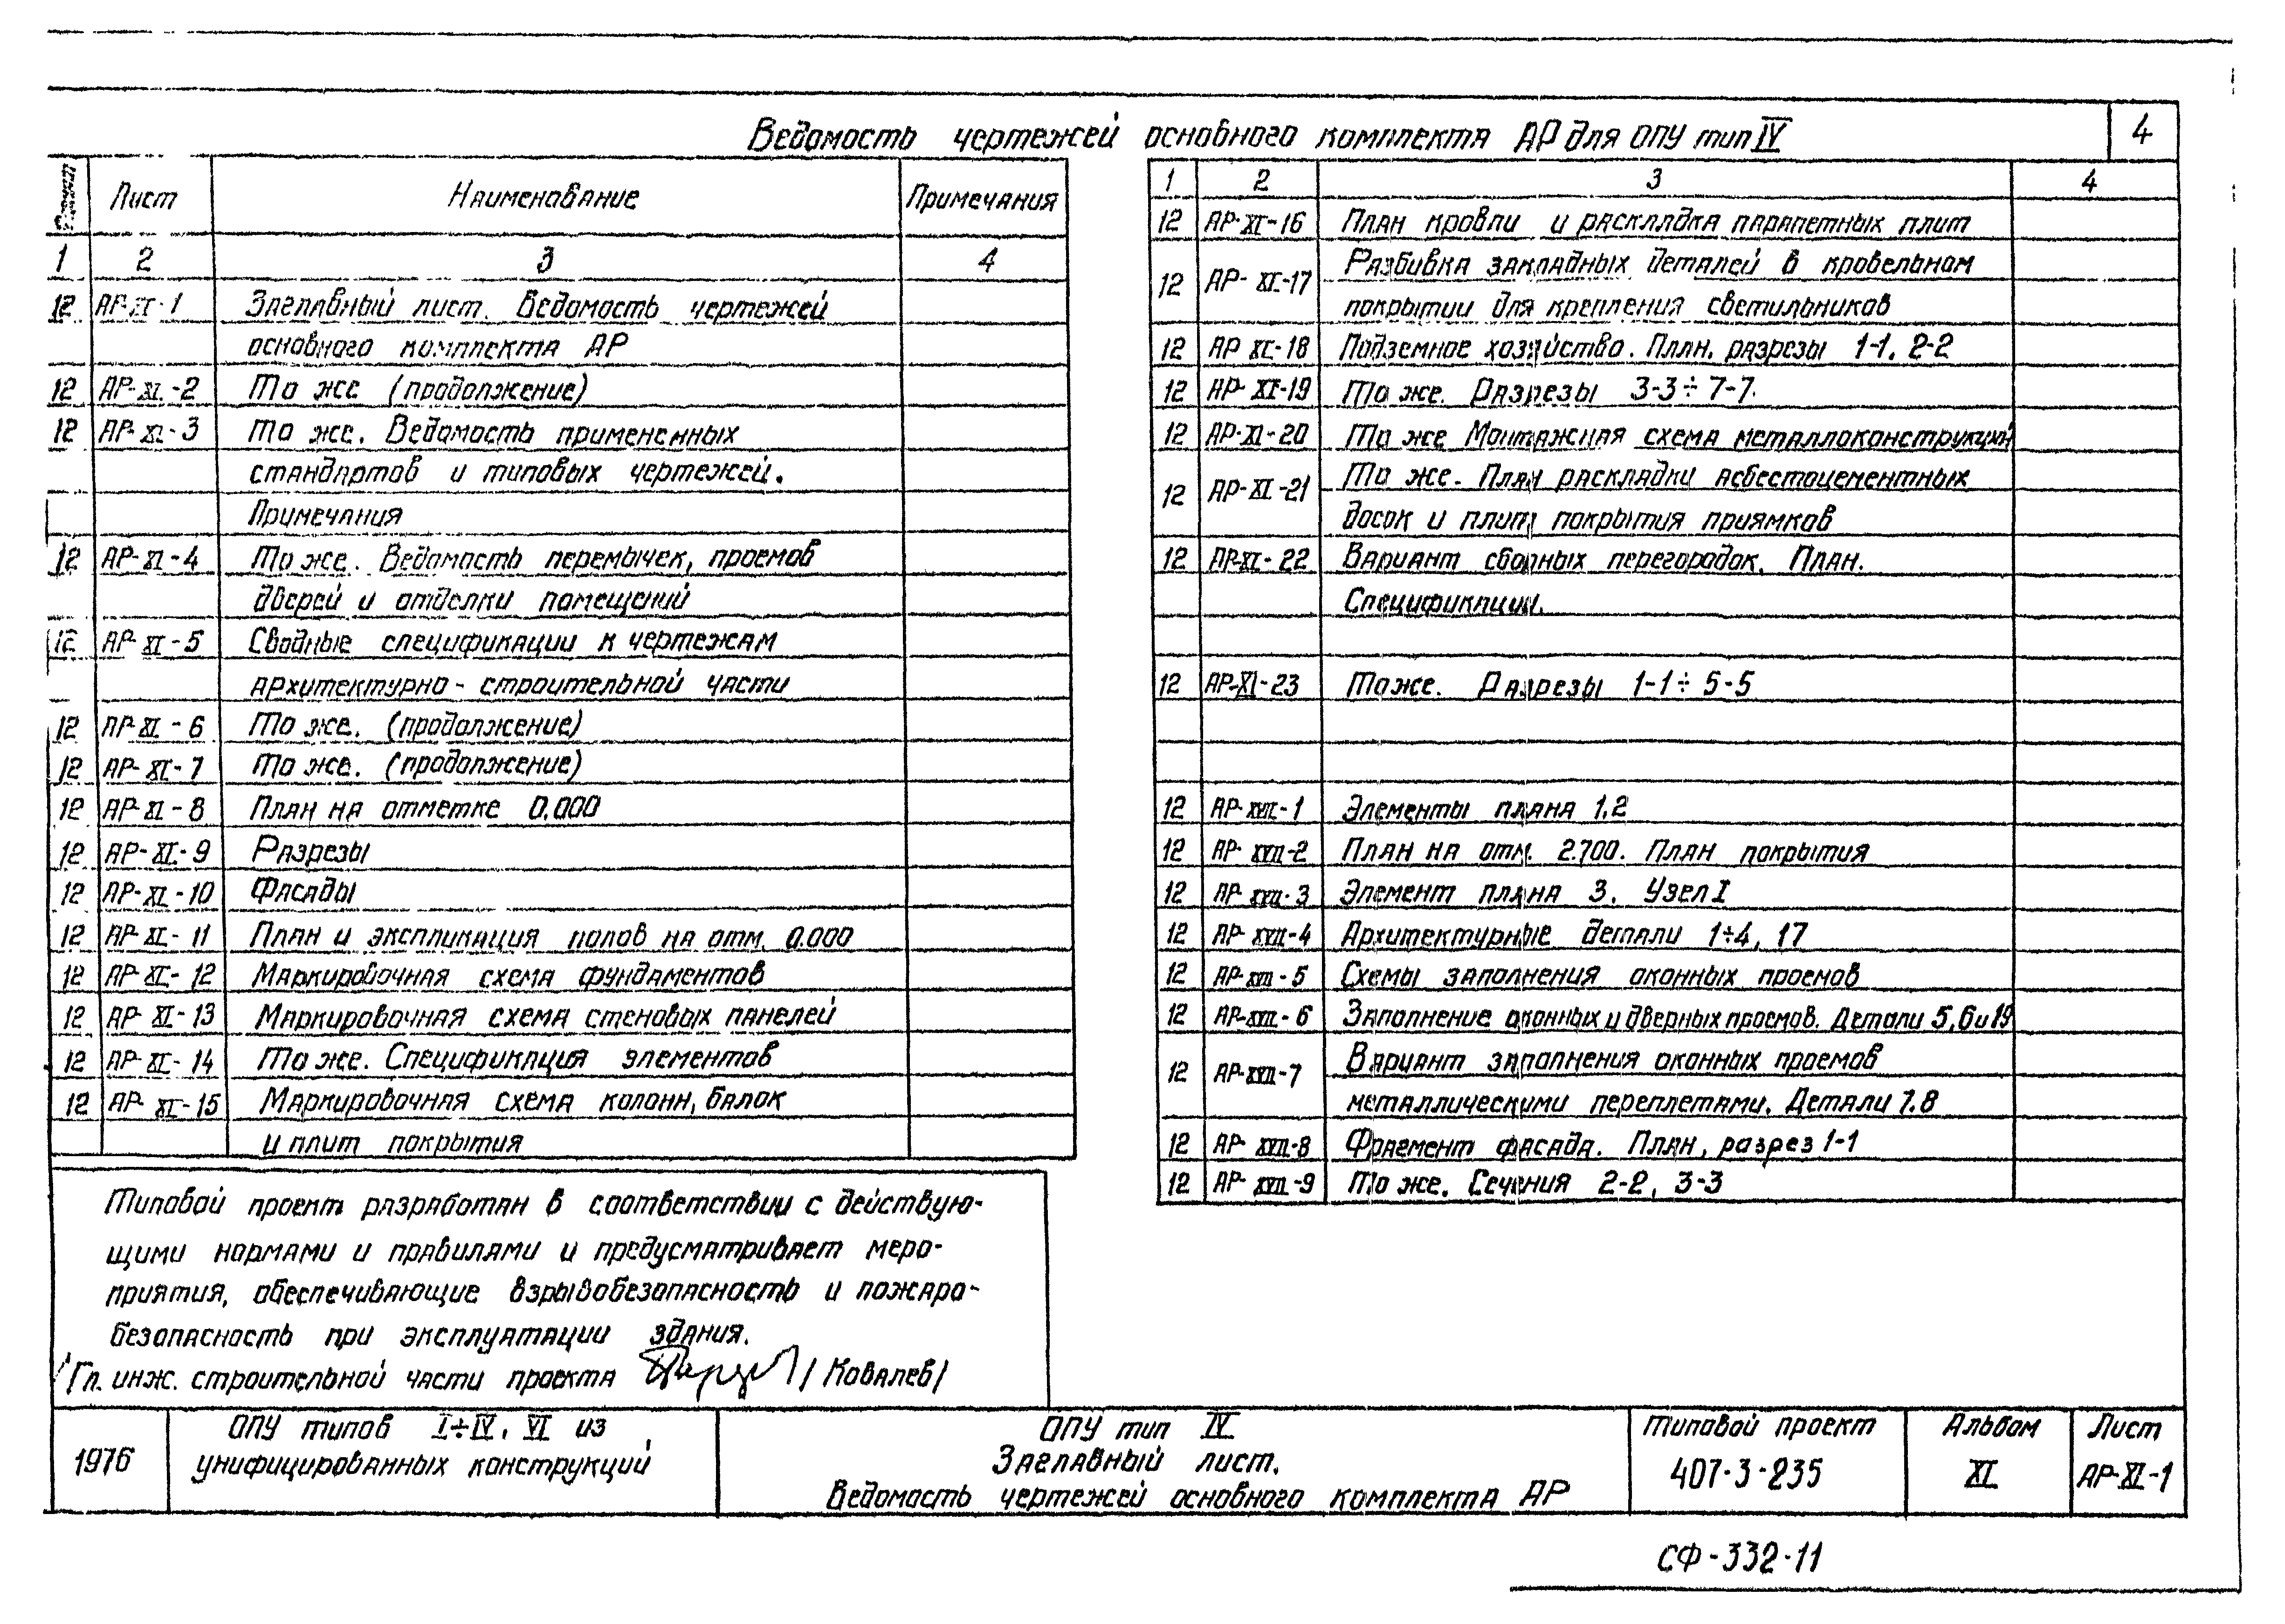 Ведомость чертежей основного комплекта АР для ОПУ тип IV
4
Лист Наименование Примечания
1 2 3 4
12 АР-XI-1 Заглавный лист. Ведомость чертежей
основного комплекта АР
12 АР-XI-2 То же (продолжение)
12 АР-XI-3 То же. Ведомость примененных
стандартов и типовых чертежей.
Примечания
12 АР-XI-4 То же. Ведомость перемычек, проемов
дверей и отделки помещений
12 АР-XI-5 Сводные спецификации к чертежам
архитектурно-строительной части
12 АР-XI-6 То же. (продолжение)
12 АР-XI-7 То же. (продолжение)
12 АР-XI-8 План на отметке 0.000
12 АР-XI-9 Разрезы
12 АР-XI-10 Фасады
12 АР-XI-11 План и экспликация полов на отм. 0.000
12 АР-XI-12 Маркировочная схема фундаментов
12 АР-XI-13 Маркировочная схема стеновых панелей
12 АР-XI-14 То же. Спецификация элементов
12 АР-XI-15 Маркировочная схема колонн, балок
и плит покрытия
1 2 3 4
12 АР-XI-16 План кровли и раскладка парапетных плит
12 АР-XI-17 Разбивка закладных деталей в кровельном
покрытии для крепления светильников
12 АР XI-18 Подземное хозяйство. План, разрезы 1-1, 2-2
12 АР-XI-19 То же. Разрезы 3-3÷7-7.
12 АР-XI-20 То же Монтажная схема металлоконструкций
12 АР-XI-21 То же. План раскладки асбестоцементных
досок и плит покрытия приямков
12 АР-XI-22 Вариант сборных перегородок. План.
Спецификации.
12 АР-XI-23 То же. Разрезы 1-1÷5-5
12 АР-XVII-1 Элементы плана 1,2
12 АР-XVII-2 План на отм. 2.700. План покрытия
12 АР-XVII-3 Элемент плана 3. Узел I
12 АР-XVII-4 Архитектурные детали 1÷4, 17
12 АР-XVII-5 Схемы заполнения оконных проемов
12 АР-XVII-6 Заполнение оконных и дверных проемов. Детали 5,6 и 19
12 АР-XVII-7 Вариант заполнения оконных проемов
металлическими переплетами. Детали 7.8
12 АР-XVII-8 Фрагмент фасада. План, разрез 1-1
12 АР-XVII-9 То же. Сечения 2-2, 3-3
Типовой проект разработан в соответствии с действую-
щими нормами и правилами и предусматривает меро-
приятия, обеспечивающие взрывобезопасность и пожаро-
безопасность при эксплуатации здания.
Гл. инж. строительной части проекта /Ковалев/
1976
ОПУ типов I÷IV, VI из
унифицированных конструкций
ОПУ тип IV
Заглавный лист.
Ведомость чертежей основного комплекта АР
Типовой проект
407-3-235
Альбом
XI
Лист
АР-XI-1
СФ-332-11